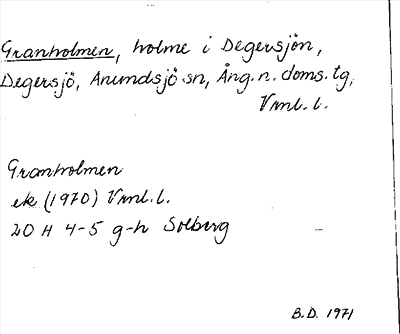 Granholmen, holme i Degersjön,
Degersjö, Anundsjö sn, Ång. n. doms. tg,
Vnl. l.
Granholmen
ek (1970) Vnl. l.
20 H 4-5 g-h Solberg
B.D. 1971